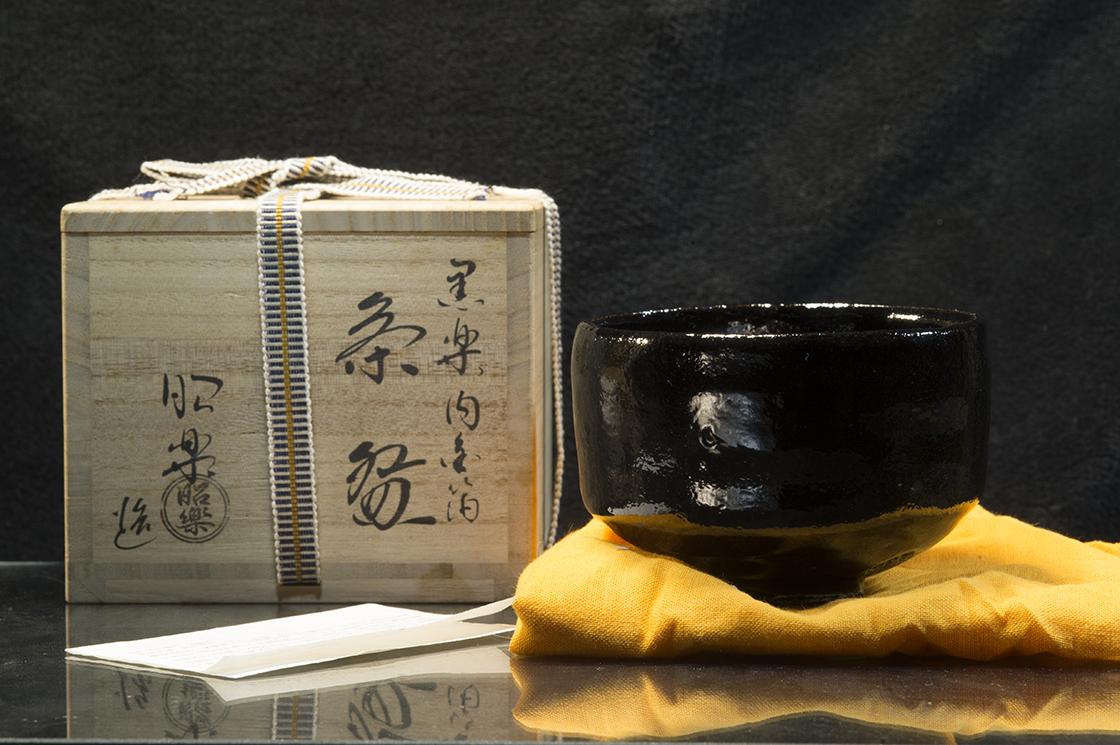 黒楽内金箔
茶盌
昭楽
造
昭樂